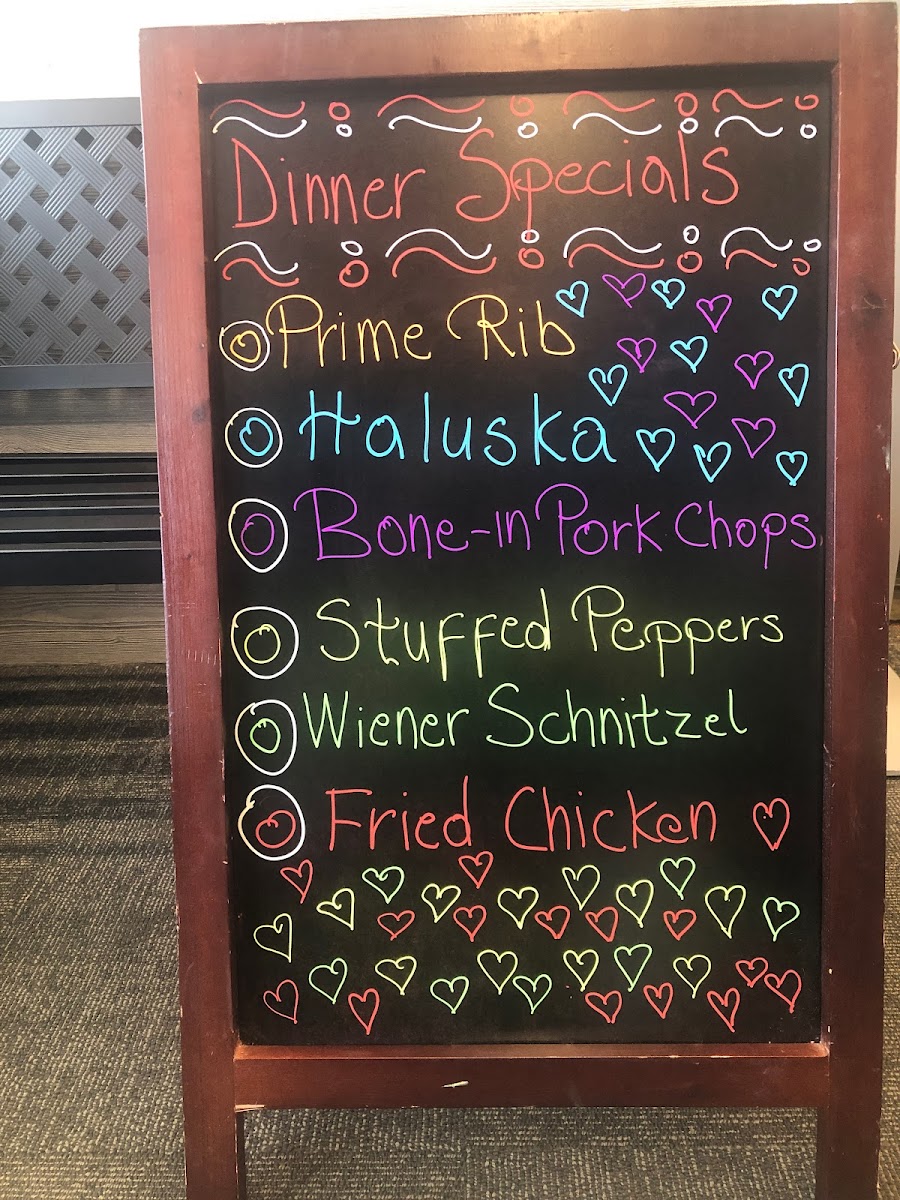 Dinner Specials
Prime Rib
Haluska
Bone-in Pork Chops
Stuffed Peppers
Wiener Schnitzel
Fried Chicken